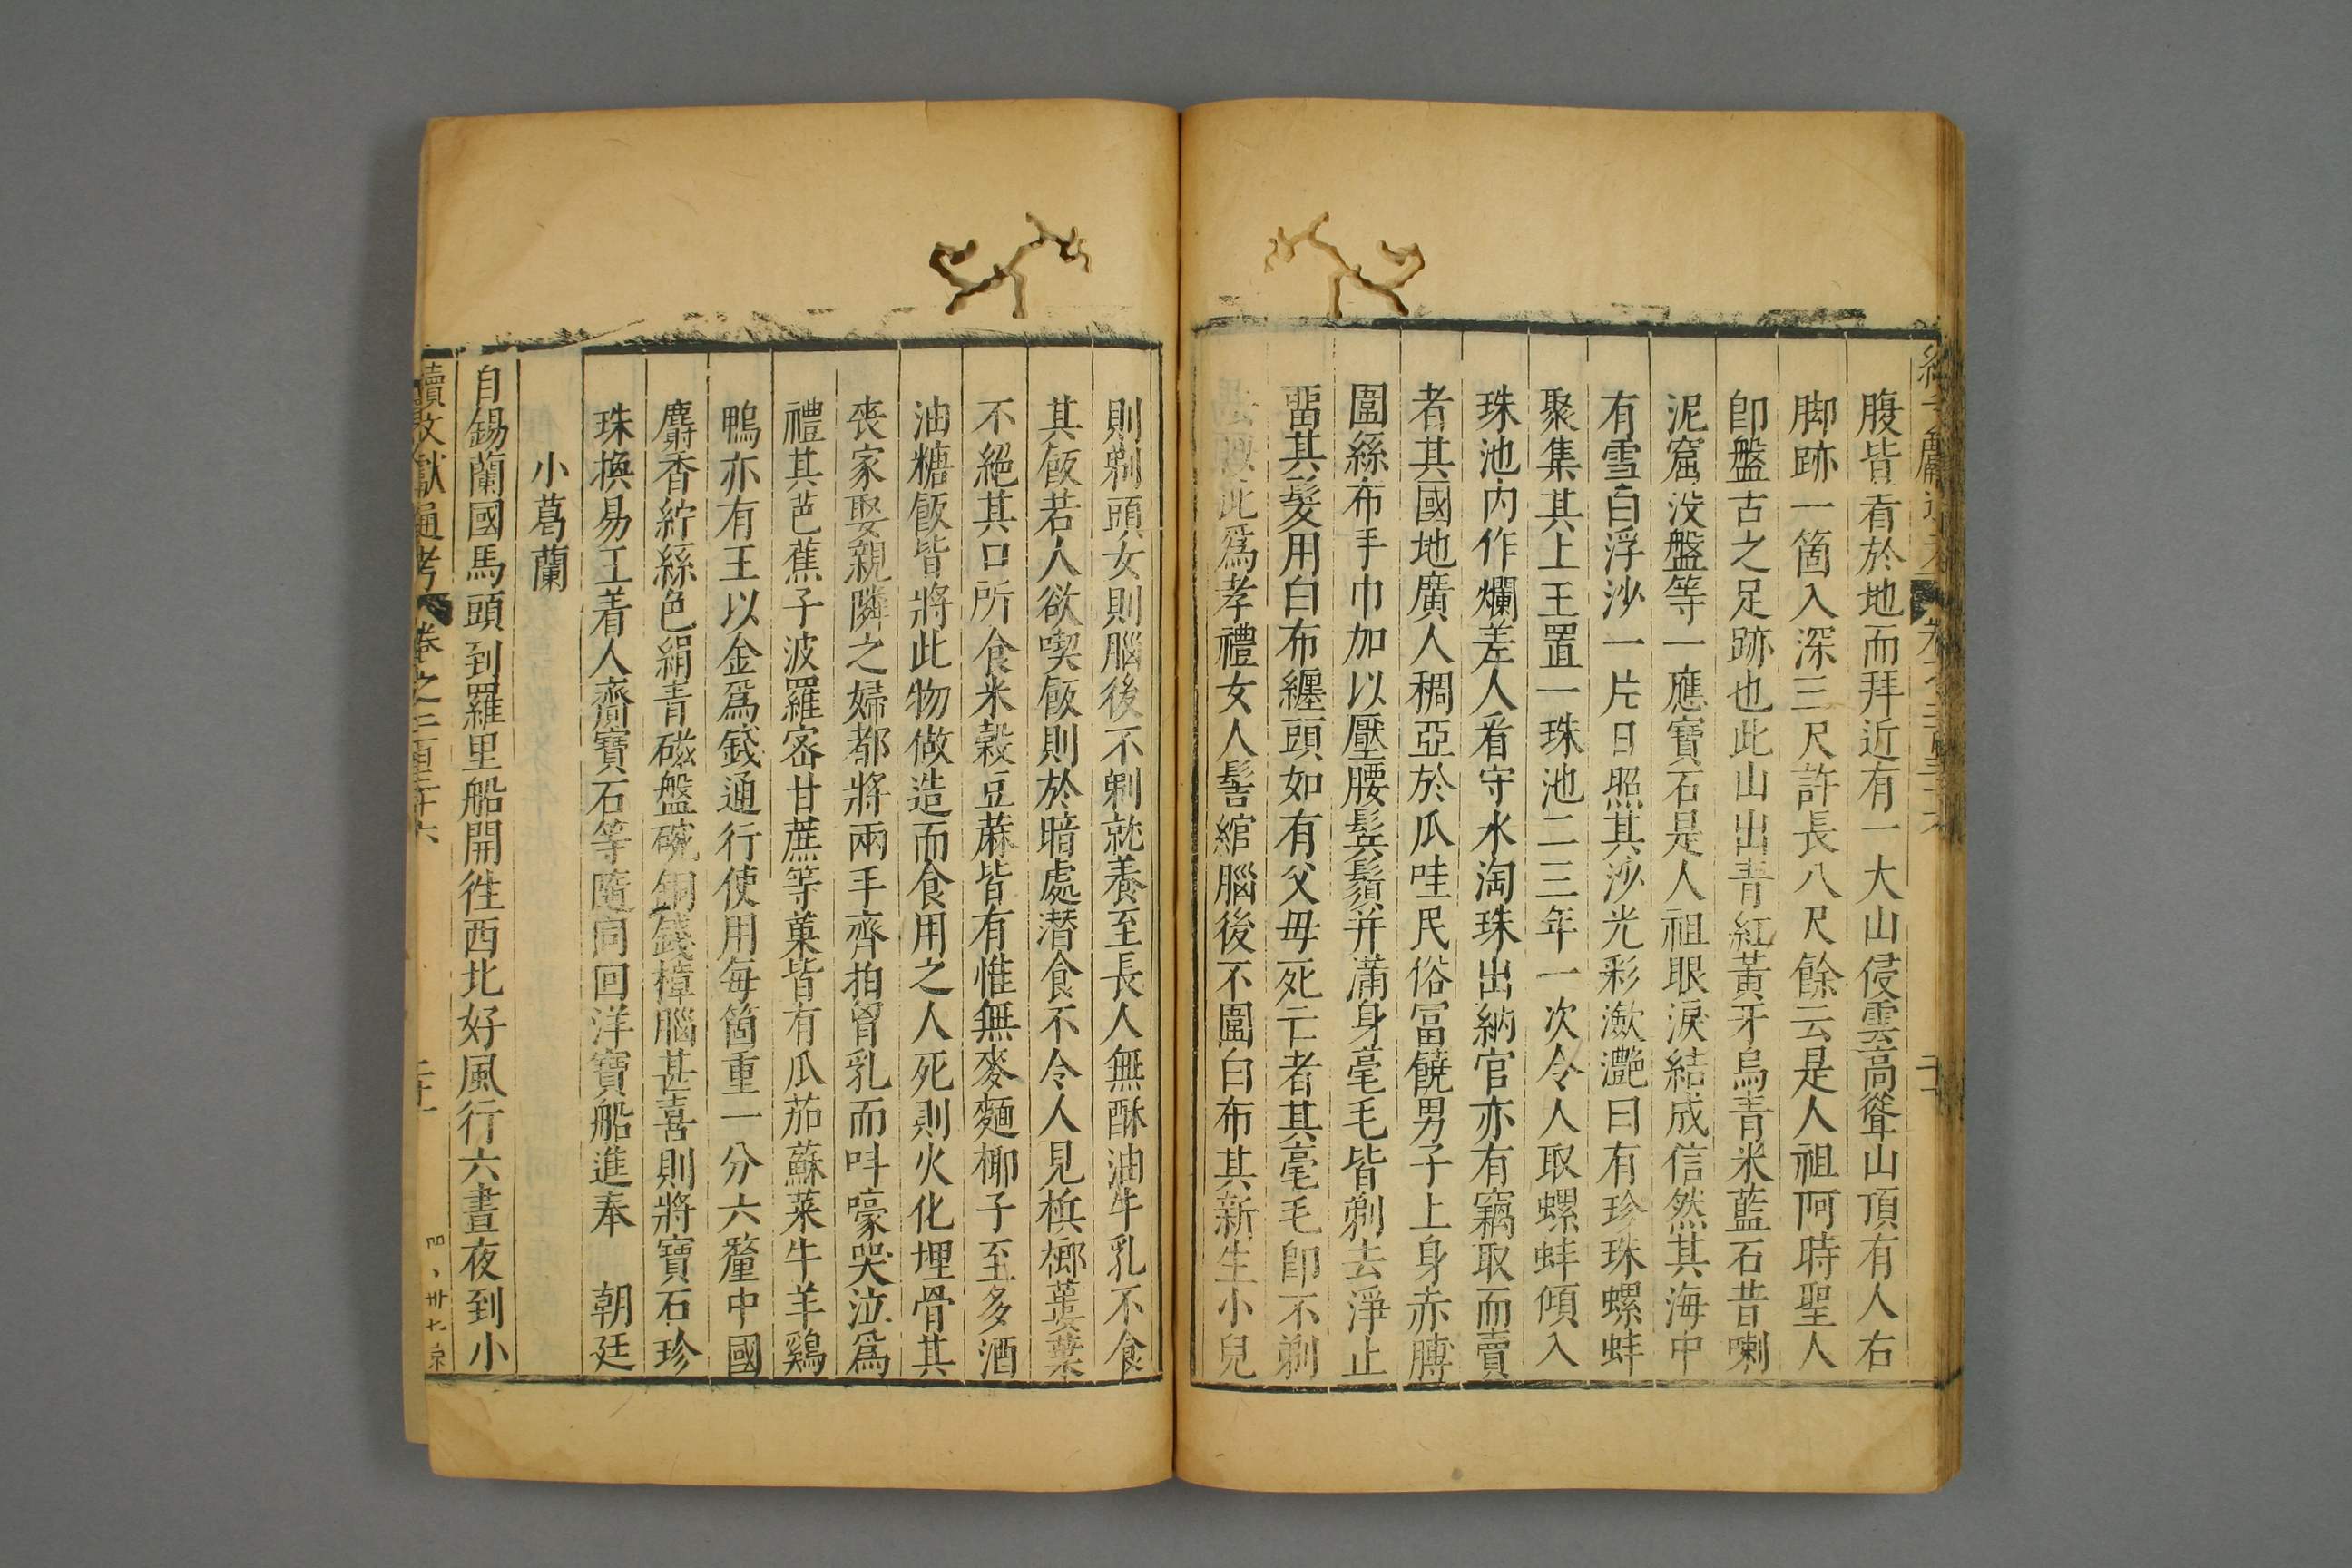 腹皆着於地而拜近有一大山侵雲高聳山頂有人右
脚跡一箇入深三尺許長八尺餘云是人祖阿聃聖人
卽盤古之足跡也此山出青紅黃牙烏青米藍石昔喇
泥窟没盤等一應寶石是人祖眼淚結成信然其海中
有雪白浮沙一片日照其沙光彩瀲灔日有珍珠螺蚌
聚集其上王置一珠池二三年一次令人取螺蚌傾入
珠池内作爛差人看守水淘珠出納官亦有竊取而賣
者其國地廣人稠亞於瓜哇民俗冨饒男子上身赤膊
圍絲布手巾加以壓腰鬂鬚并滿身毫毛皆剃去淨止
畱其髮用白布纏頭如有父母死亡者其毫毛卽不剃
此爲孝禮女人髻綰腦後不圍白布其新生小兒
則剃頭女則腦後不剃就養至長人無酥油牛乳不食
其飯若人欲喫飯則於暗處潛食不令人見檳榔蔞葉
不絕其口所食米穀豆蔴皆有惟無麥麵椰子至多酒
油糖飯皆將此物做造而食用之人死則火化埋骨其
喪家娶親隣之婦都將兩手齊拍胷乳而呌嚎哭泣爲
禮其芭蕉子波羅宻甘蔗等菓皆有瓜茄蘇菜牛羊鷄
鴨亦有王以金爲錢通行使用每箇重一分六釐中國
麝香紵絲色絹青磁盤碗銅錢樟腦甚喜則將寶石珍
珠換易王着人齎寶石等隨同回洋寶船進奉　朝廷
小葛蘭
自錫蘭國馬頭到羅里船開徃西北好風行六晝夜到小
續文獻通考　卷之二百三十六